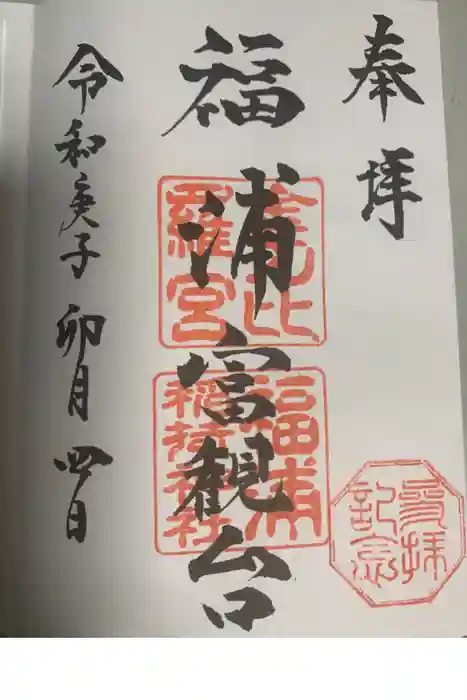 奉拝
福浦富観台
令和庚子 卯月 四日
金比
羅宮
福浦
参拝
記念